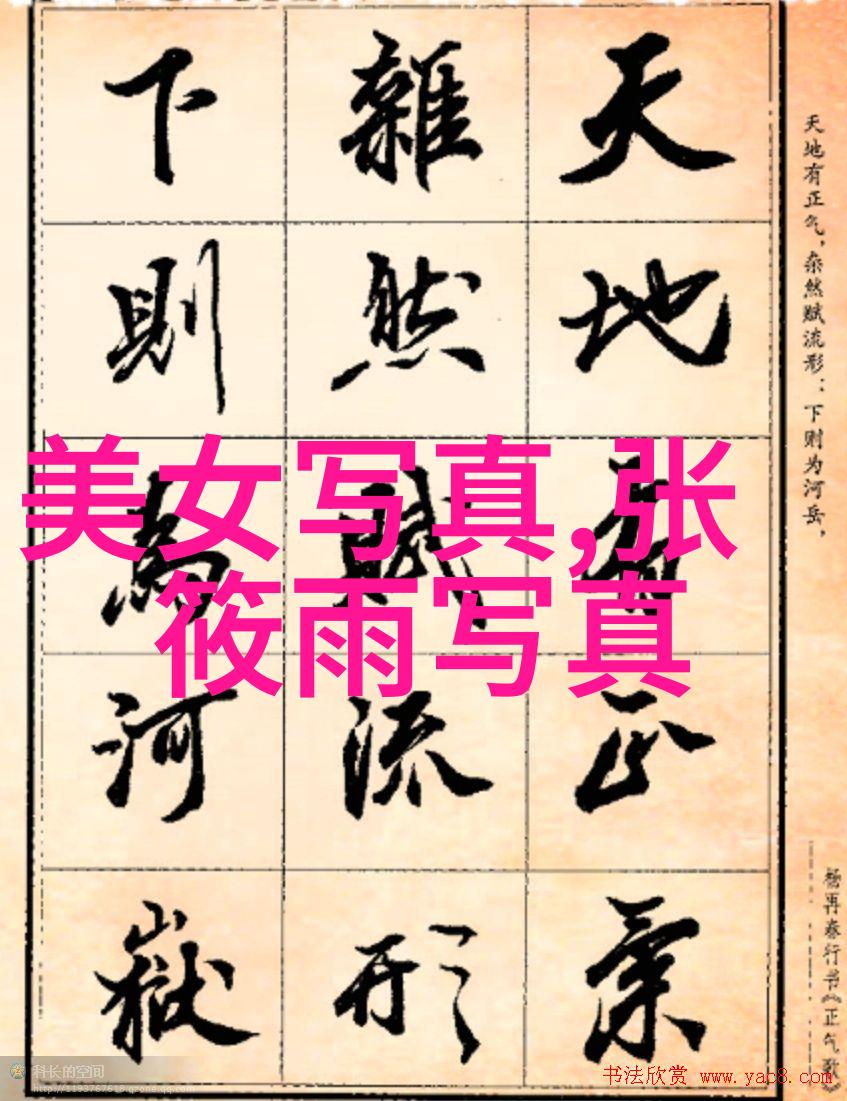 天地有正氣
雜然賦流形
下則為河嶽
天地有正气，杂然赋流形：下则为河岳，
杨再春行书《正气歌》
美女写真,张
筱雨写真
科长的空间
http://1193767618.qzone.qq.com
书法欣赏 www.yac8.com